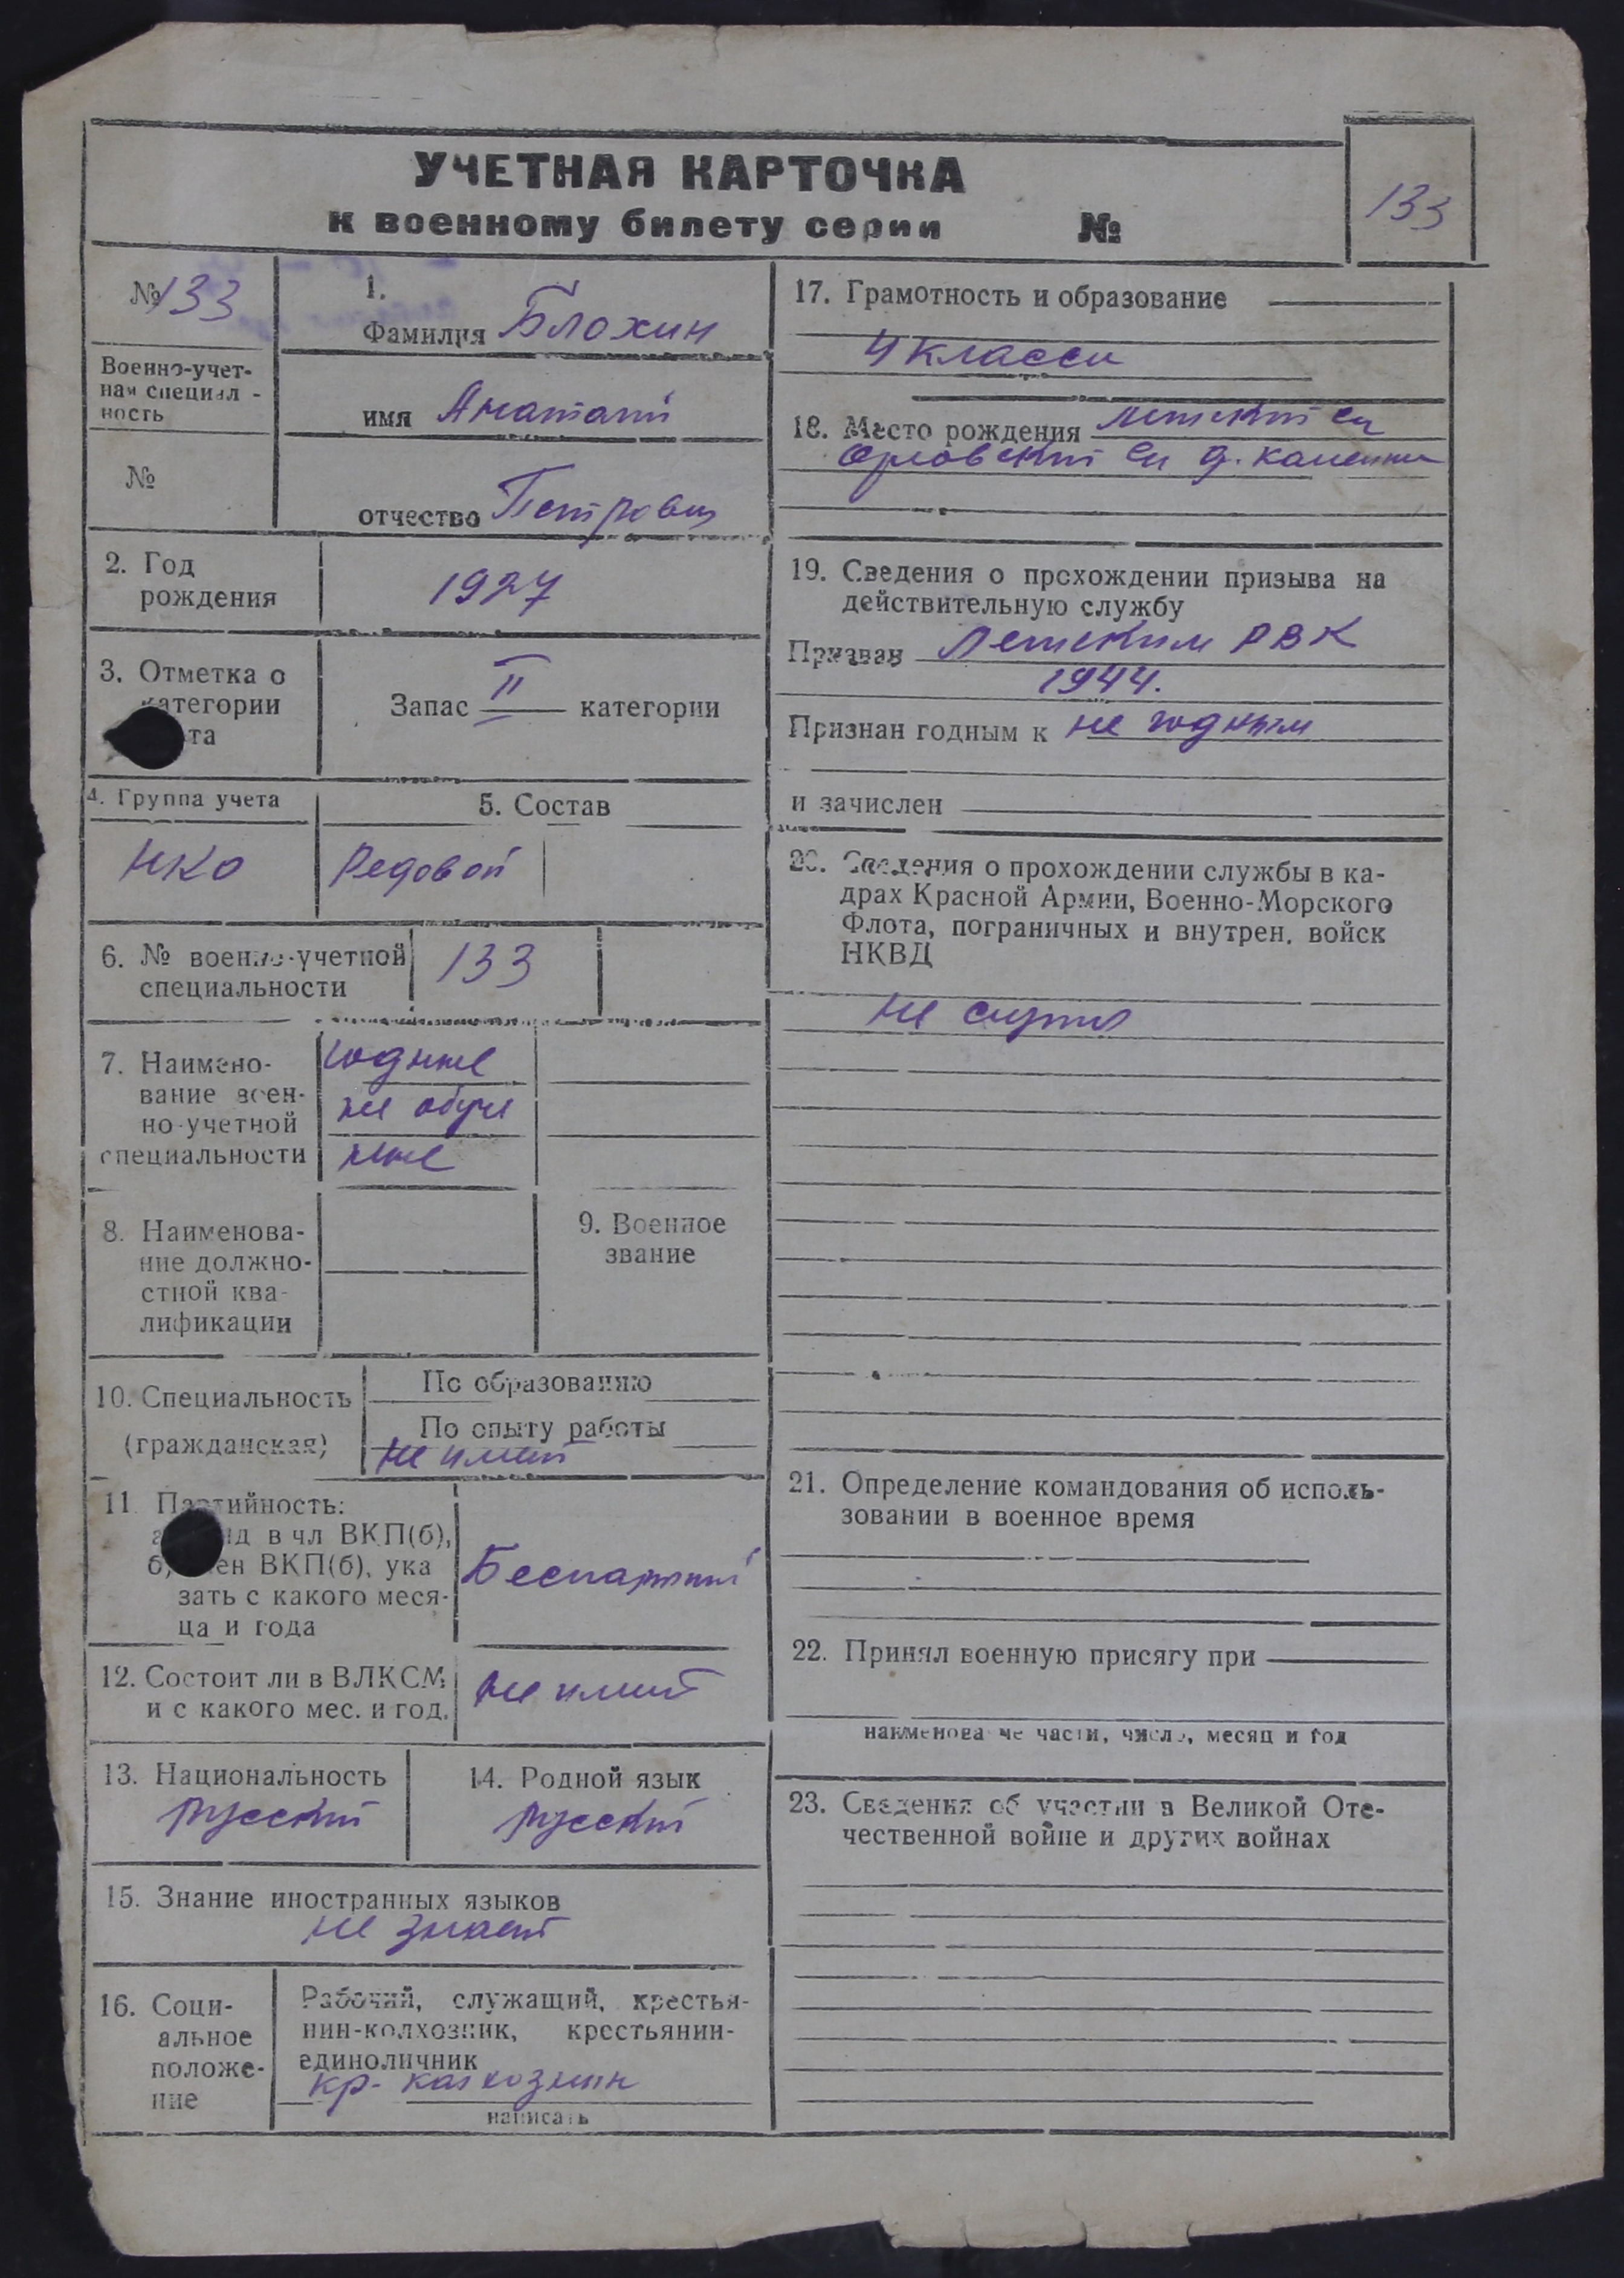 УЧЕТНАЯ КАРТОЧКА
к военному билету серии №
133
№ 133
Военно-учет-
ная специал -
ность
№
1.
Фамилия Блохин
имя Анатаий
отчество Петрович
2. Год
рождения
1927
3. Отметка о
категории
та
Запас II категории
4. Группа учета
НКО
5. Состав
Редовой
6. № военно-учетной
специальности
133
7. Наимено-
вание воен-
но-учетной
специальности
годные
не обуче
ные
8. Наименова-
ние должно-
стной ква-
лификации
9. Военное
звание
10. Специальность
(гражданская)
По образованию
По опыту работы
не имеит
11. Партийность:
нд в чл ВКП(б),
б, ен ВКП(б), ука
зать с какого меся-
ца и года
Беспартый
12. Состоит ли в ВЛКСМ
и с какого мес. и год.
не имеит
13. Национальность
русский
14. Родной язык
русский
15. Знание иностранных языков
не знает
16. Соци-
альное
положе-
ние
Рабочий, служащий, крестья-
нин-колхозник, крестьянин-
единоличник
кр- калхозник
написать
17. Грамотность и образование
4 класса
18. Место рождения
Орловский д. каменка
19. Сведения о прохождении призыва на
действительную службу
Призван Летским РВК
1944.
Признан годным к не годным
и зачислен
20. Сведения о прохождении службы в ка-
драх Красной Армии, Военно-Морского
Флота, пограничных и внутрен. войск
НКВД
не служил
21. Определение командования об исполь-
зовании в военное время
22. Принял военную присягу при
наименова не части, число, месяц и год
23. Сведения об участии в Великой Оте-
чественной войне и других войнах